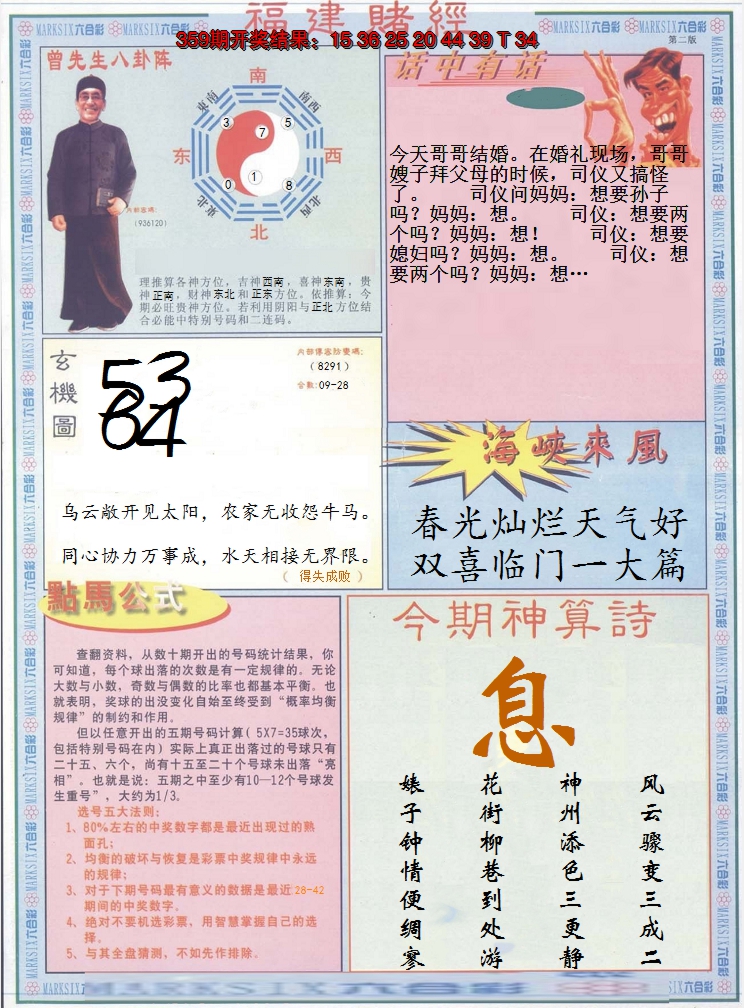 福建賭經
359期开奖结果：15 36 25 20 44 39 T 34
第二版
曾先生八卦阵
南
东南
南西
东
西
3
7
5
0
1
8
东北
北西
北
内部密碼：
（936120）
理推算各神方位，吉神西南，喜神东南，贵
神正南，财神东北和正东方位。依推算：今
期必旺贵神方位。若利用阴阳与正北方位结
合必能中特别号码和二连码。
话中有话
今天哥哥结婚。在婚礼现场，哥哥
嫂子拜父母的时候，司仪又搞怪
了。 司仪问妈妈：想要孙子
吗？妈妈：想。 司仪：想要两
个吗？妈妈：想！ 司仪：想要
媳妇吗？妈妈：想。 司仪：想
要两个吗？妈妈：想…
玄機圖
53
64
内部傳密防變碼：
（8291）
合数：09-28
乌云敞开见太阳，农家无收怨牛马。
同心协力万事成，水天相接无界限。
（ 得失成败 ）
海峽來風
春光灿烂天气好
双喜临门一大篇
點馬公式
查翻资料，从数十期开出的号码统计结果，你
可知道，每个球出落的次数是有一定规律的。无论
大数与小数，奇数与偶数的比率也都基本平衡。也
就表明，奖球的出没变化自始至终受到“概率均衡
规律”的制约和作用。
但以任意开出的五期号码计算（5X7=35球次，
包括特别号码在内）实际上真正出落过的号球只有
二十五、六个，尚有十五至二十个号球未出落“亮
相”。也就是说：五期之中至少有10—12个号球发
生重号”，大约为1/3。
选号五大法则：
1、80%左右的中奖数字都是最近出现过的熟
面孔；
2、均衡的破坏与恢复是彩票中奖规律中永远
的规律；
3、对于下期号码最有意义的数据是最近28-42
期间的中奖数字。
4、绝对不要机选彩票，用智慧掌握自己的选
择。
5、与其全盘猜测，不如先作排除。
今期神算詩
息
风云骤变三成二
神州添色三更静
花街柳巷到处游
婊子钟情便绸寥
MARKSIX六合彩